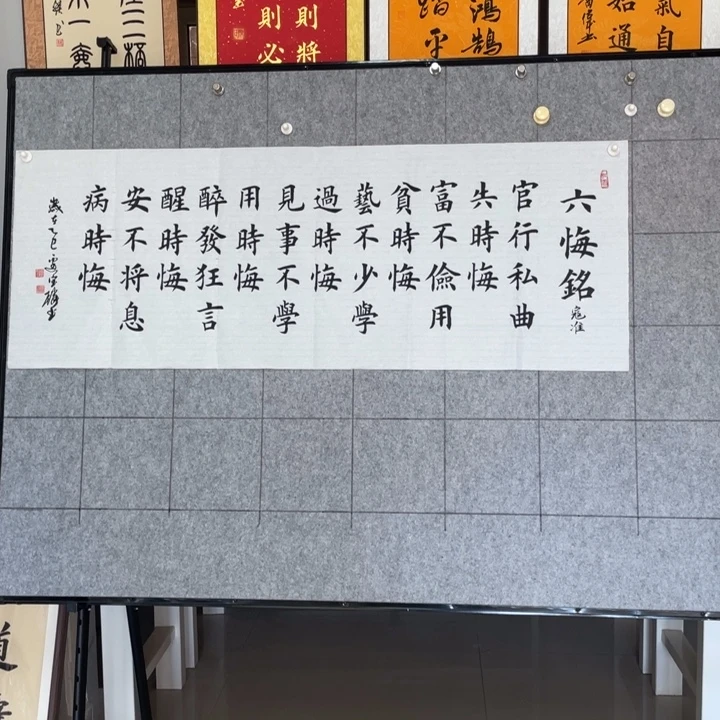 六悔銘
寇准
官行私曲
失時悔
富不儉用
貧時悔
藝不少學
過時悔
見事不學
用時悔
醉發狂言
醒時悔
安不將息
病時悔
歲在乙巳
氣自
始通
鴻鵠
踏平
則將
則必
道